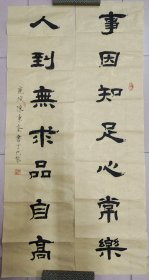 事因知足心常樂
人到無求品自高